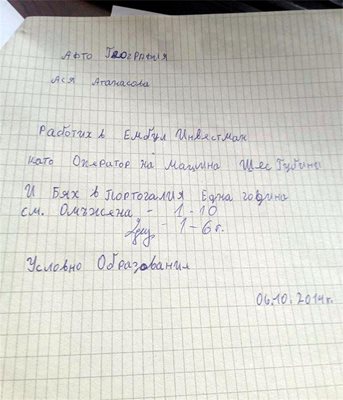 Афто География
Ася Атанасова
Работих в Ембул Инвестман
като Оператор на машина Шес Губини
И Бях в Портогалия Една година
см. Омъжена - 1-10
Дец. - 1-6 г.
Условно Образования
06.10.2014г.